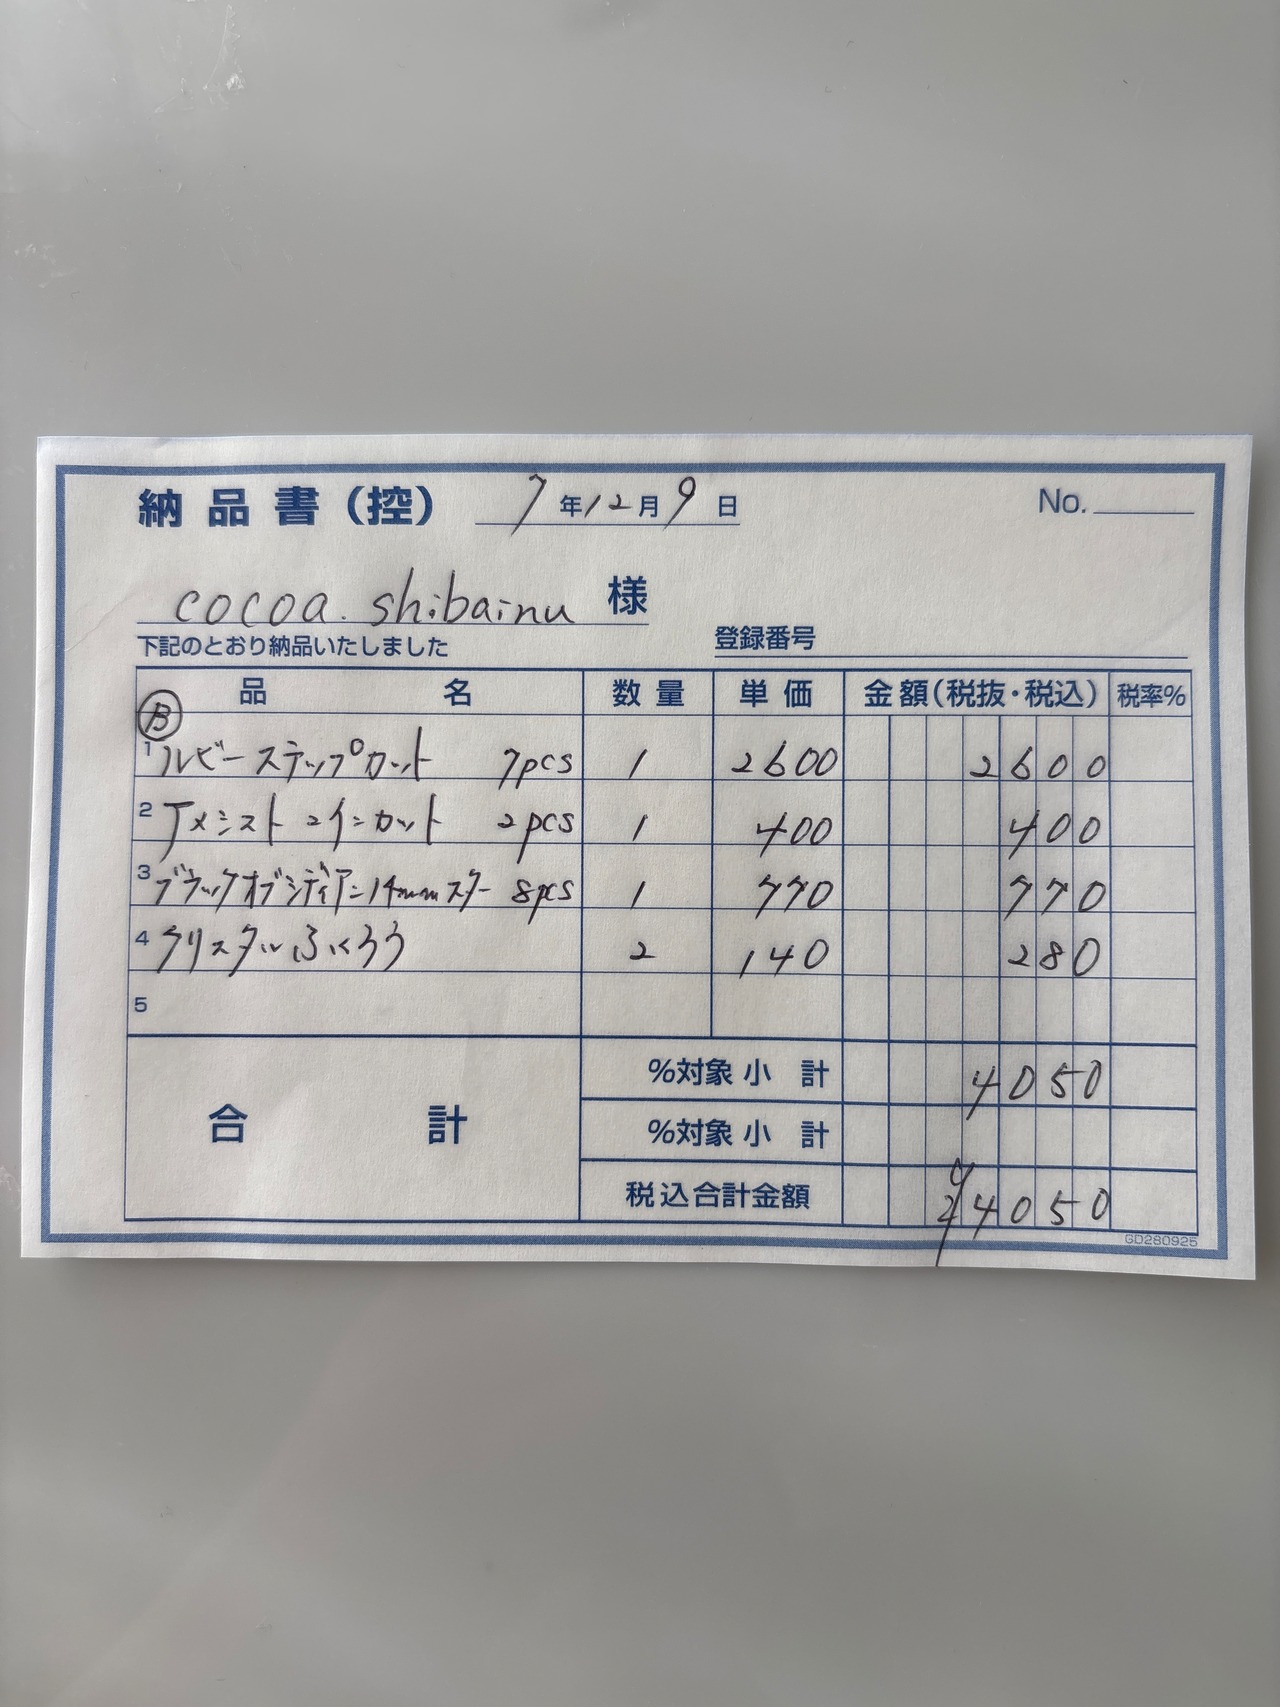 納品書(控) 7年12月9日 No.
cocoa.shibainu 様
下記のとおり納品いたしました 登録番号
品名 数量 単価 金額(税抜・税込) 税率%
B
1 ルビーステップカット 7pcs 1 2600 2600
2 アメシスト コインカット 2pcs 1 400 400
3 ブラックオブシディアン14mmスター 8pcs 1 770 770
4 クリスタルふくろう 2 140 280
5
合計
%対象小計 4050
%対象小計
税込合計金額 ¥4050
GD280925